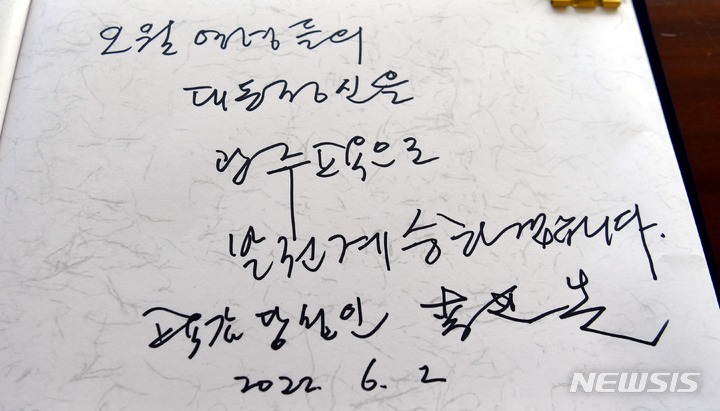 오월 영령들의
대동정신을
광주교육으로
발전계승하겠습니다.
교육감 당선인
2022. 6. 2
NEWSIS